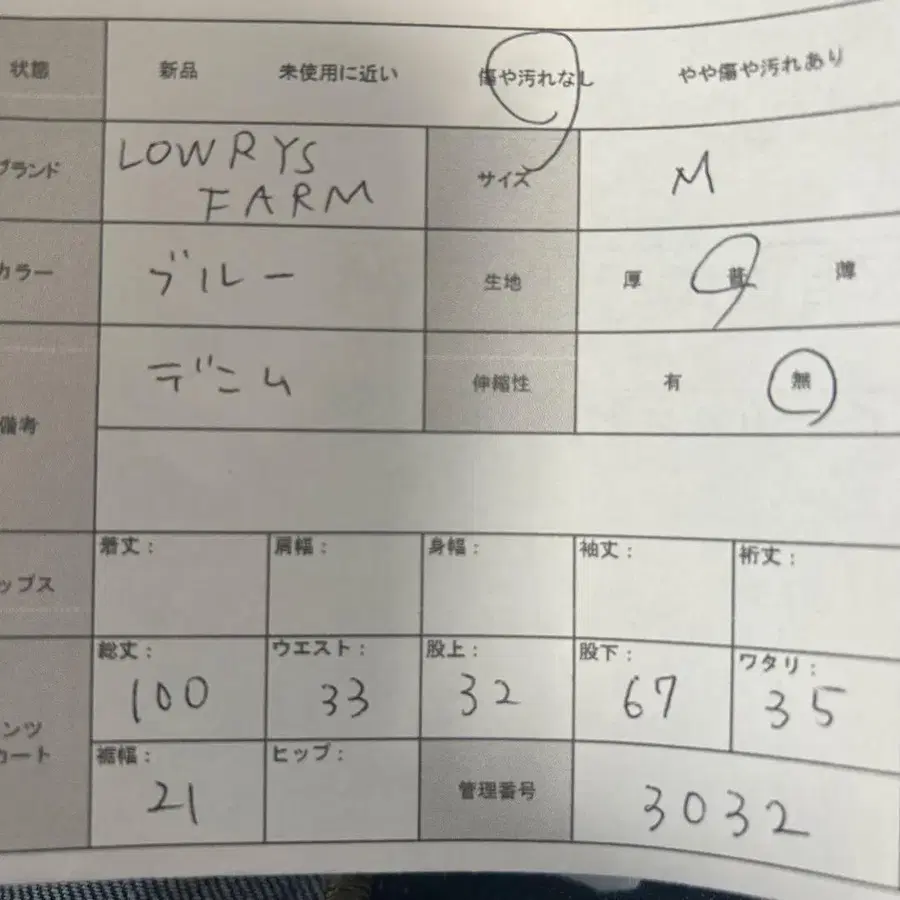 状態 新品 未使用に近い 傷や汚れなし やや傷や汚れあり
ブランド LOWRYS FARM サイズ M
カラー ブルー 生地 厚 普 薄
備考 デニム 伸縮性 有 無
ップス 着丈: 肩幅: 身幅: 袖丈: 裄丈:
ンツ カート 総丈: 100 ウエスト: 33 股上: 32 股下: 67 ワタリ: 35
裾幅: 21 ヒップ: 管理番号 3032